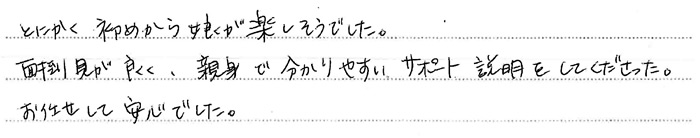 とにかく初めから娘が楽しそうでした。
面倒見が良く、親身で分かりやすいサポート説明をしてくださった。
お任せして安心でした。